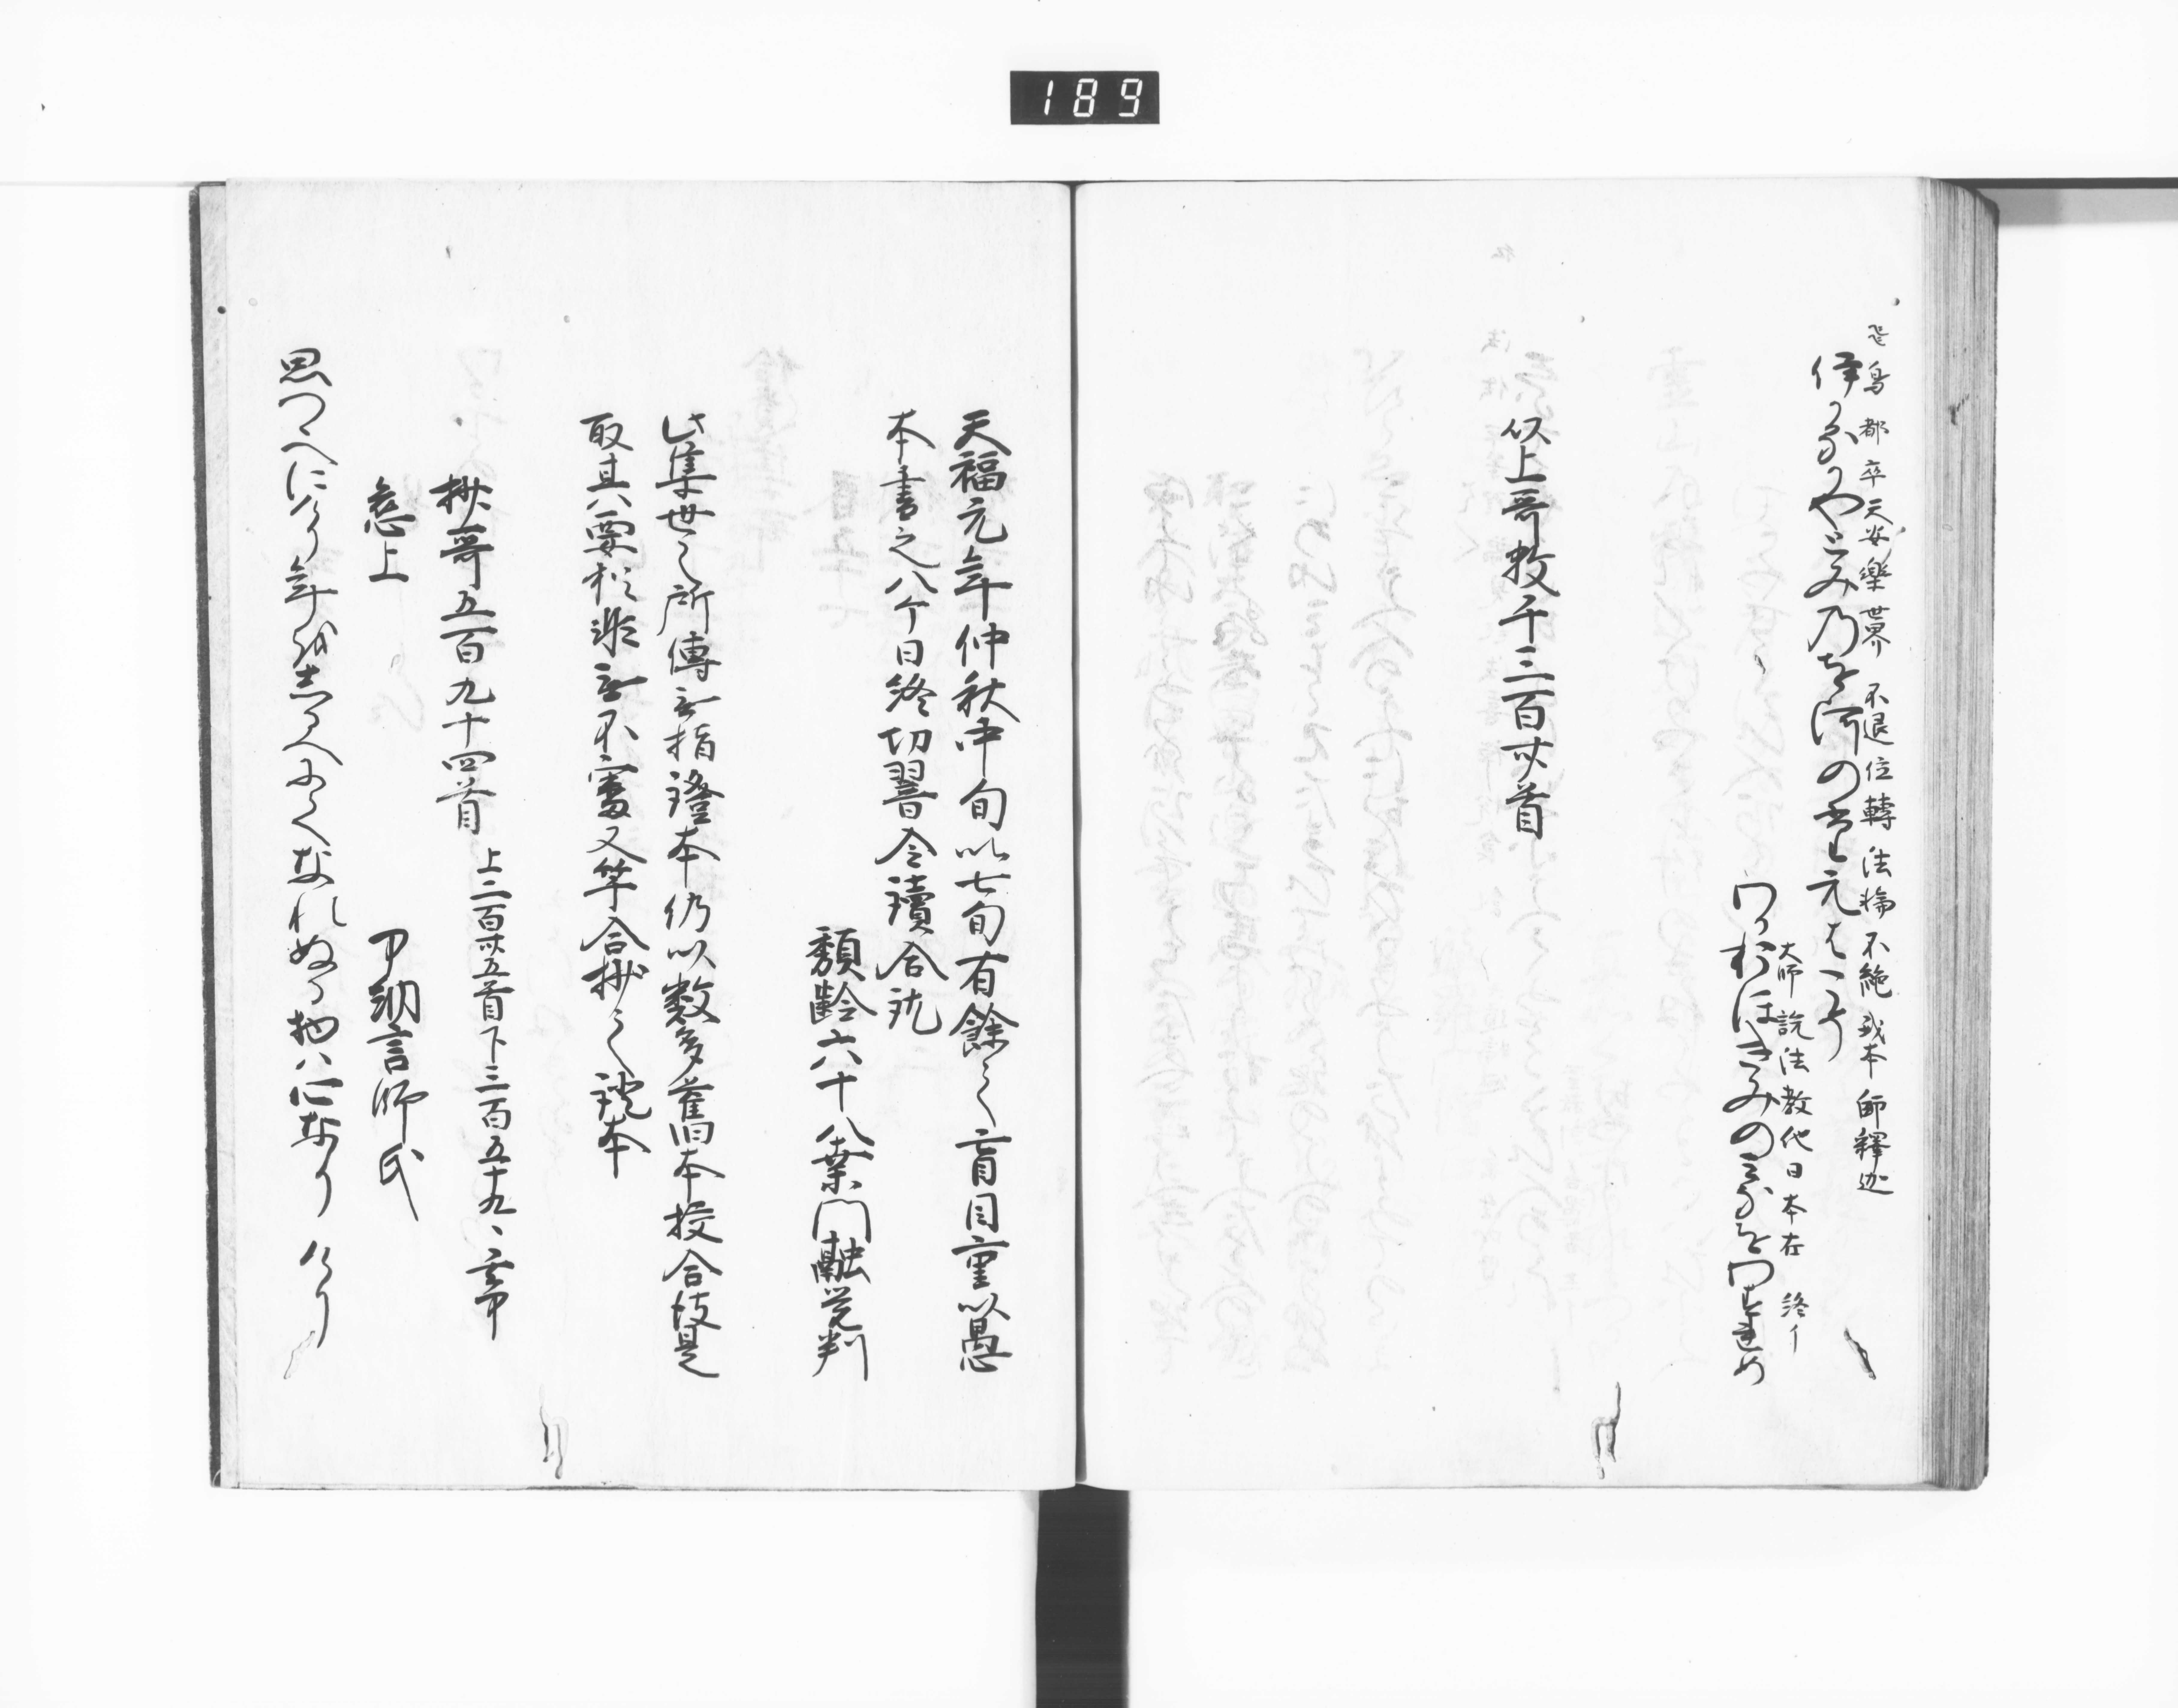 189
飛鳥都卒天安樂世界不退位轉法輪不絶我本師釋迦
伊かるかやとみ乃を河のたえはこそ
大師説法教化日本在終イ
わかおほきみのみなをわすれめ
以上哥数千三百五十一首
天福元年仲秋中旬以七旬有餘之盲目重以愚
本書之八ケ日終切翌日令讀合訖
頽齢六十八桑門融覚判
此集世之所傳無指證本仍以数多舊旧本挍合彼是
取其要猶非無不審又竿合抄之證本
抄哥五百九十四首 上二百卅五首下三百五十九々
愈上 中納言師氏
思つゝへにける年をしるへにてなれぬる物ハ心なりけり